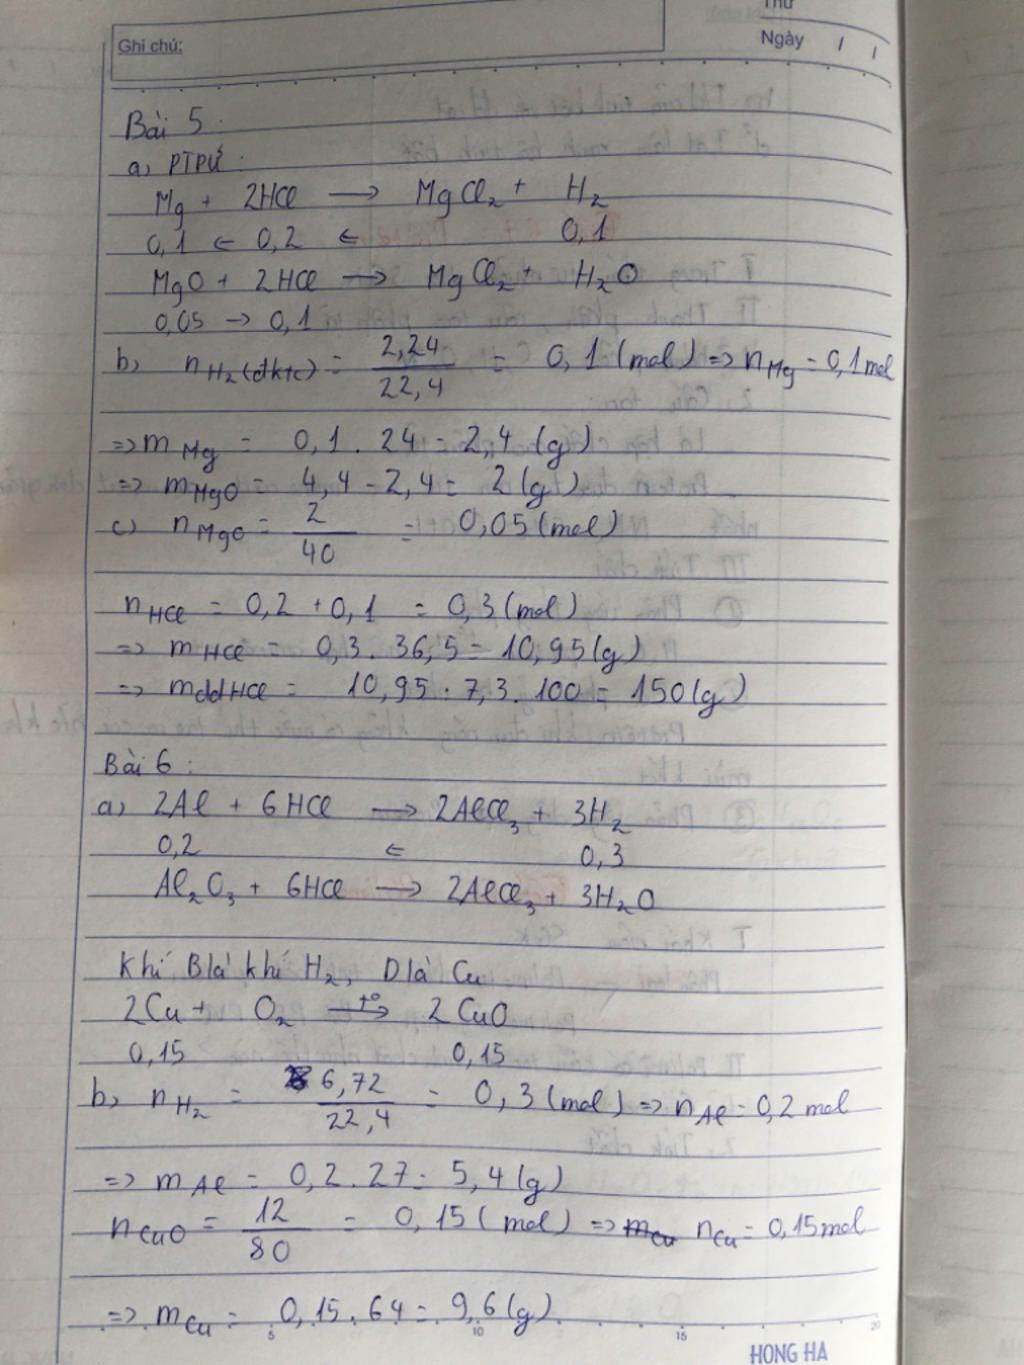 Thứ
Ghi chú:
Ngày / /
Bài 5:
a, PTPƯ:
Mg + 2HCl → MgCl₂ + H₂
0,1 ← 0,2 ← 0,1
MgO + 2HCl → MgCl₂ + H₂O
0,05 → 0,1
b, n H₂(đktc) = 2,24/22,4 = 0,1 (mol) => n Mg = 0,1 mol
=> m Mg = 0,1 . 24 = 2,4 (g)
=> m MgO = 4,4 - 2,4 = 2 (g)
c) n MgO = 2/40 = 0,05 (mol)
n HCl = 0,2 + 0,1 = 0,3 (mol)
=> m HCl = 0,3 . 36,5 = 10,95 (g)
=> mdd HCl = 10,95 : 7,3 . 100 = 150 (g)
Bài 6:
a) 2Al + 6HCl → 2AlCl₃ + 3H₂
0,2 ← 0,3
Al₂O₃ + 6HCl → 2AlCl₃ + 3H₂O
Khí B là khí H₂, D là Cu
2Cu + O₂ t° → 2CuO
0,15 0,15
b, n H₂ = 6,72/22,4 = 0,3 (mol) => n Al = 0,2 mol
=> m Al = 0,2 . 27 = 5,4 (g)
n CuO = 12/80 = 0,15 (mol) => m Cu n Cu = 0,15 mol
=> m Cu = 0,15 . 64 = 9,6 (g)
5 10 15 20
HONG HA